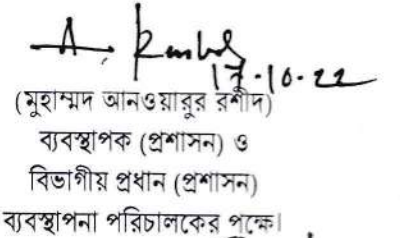 17-10-22
(মুহাম্মদ আনওয়ারুর রশীদ)
ব্যবস্থাপক (প্রশাসন) ও
বিভাগীয় প্রধান (প্রশাসন)
ব্যবস্থাপনা পরিচালকের পক্ষে।